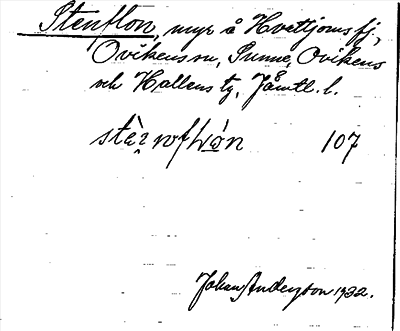 Stenflon, myr å Hvettjoms fj.,
Ovikens sn, Sunne, Ovikens
och Hallens tg, Jämtl. l.
107
Johan Anderson 1932.